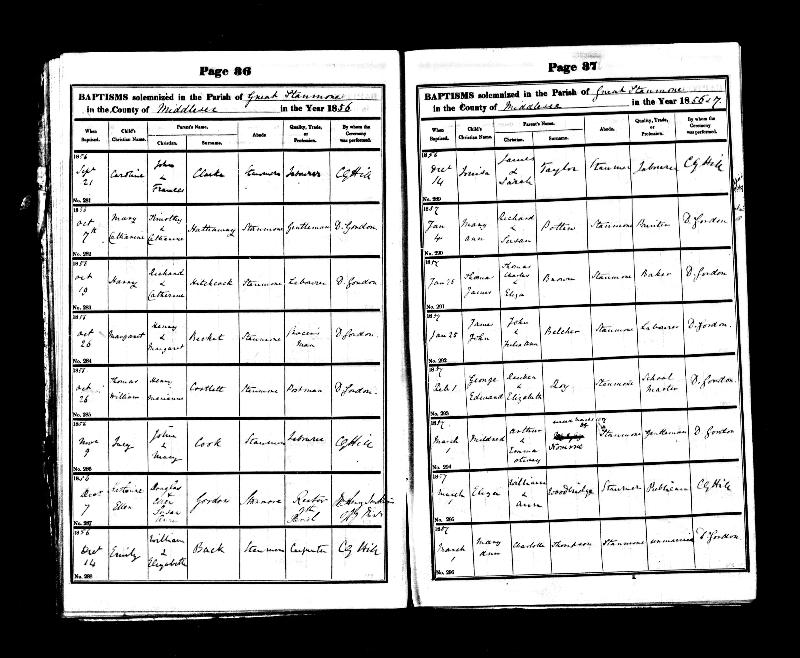 Page 86
BAPTISMS solemnized in the Parish of Great Stanmore
in the County of Middlesex in the Year 1856
When Baptized. Child's Christian Name. Parent's Name. Abode. Quality, Trade, or Profession. By whom the Ceremony was performed.
Christian. Surname.
1856 Sept 21 Caroline John & Frances Clarke Stanmore Labourer CG Hill
No. 281
1856 Oct 7th Mary Catharine Timothy & Catharine Hathaway Stanmore Gentleman D. Gordon
No. 282
1856 Oct 19 Harry Richard & Catherine Hitchcock Stanmore Labourer D. Gordon
No. 283
1856 Oct 26 Margaret Henry & Margaret Becket Stanmore Man D. Gordon
No. 284
1856 Oct 26 Thomas William Henry Marianne Stanmore Postman D. Gordon
No. 285
1856 Novr 9 Lucy John & Mary Cook Stanmore Labourer CG Hill
No. 286
1856 Decr 7 Ellen Douglas & Ellen Susan Ann Gordon Stanmore Rector
No. 287
1856 Decr 14 Emily William & Elizabeth Buck Stanmore Carpenter CG Hill
No. 288
Page 87
BAPTISMS solemnized in the Parish of Great Stanmore
in the County of Middlesex in the Year 1856 & 7.
When Baptized. Child's Christian Name. Parent's Name. Abode. Quality, Trade, or Profession. By whom the Ceremony was performed.
Christian. Surname.
1856 Decr 14 Louisa James & Sarah Taylor Stanmore Labourer CG Hill
No. 289
1857 Jan 4 Mary Ann Richard & Susan Potter Stanmore D. Gordon
No. 290
1857 Jan 25 Thomas James Thomas Charles & Eliza Brown Stanmore Baker D. Gordon
No. 291
1857 Jan 25 James John John & Belcher Stanmore Labourer D. Gordon.
No. 292
1857 Feb 1 George Edward Reuben & Elizabeth Stanmore School Master D. Gordon
No. 293
1857 March 1 Mildred Arthur & Emma Stanmore Gentleman D. Gordon
No. 294
1857 March Eliza William & Ann Woodbridge Stanmore Publican CG Hill
No. 295
1857 March 1 Mary Ann Charlotte Thompson Stanmore unmarried D. Gordon
No. 296